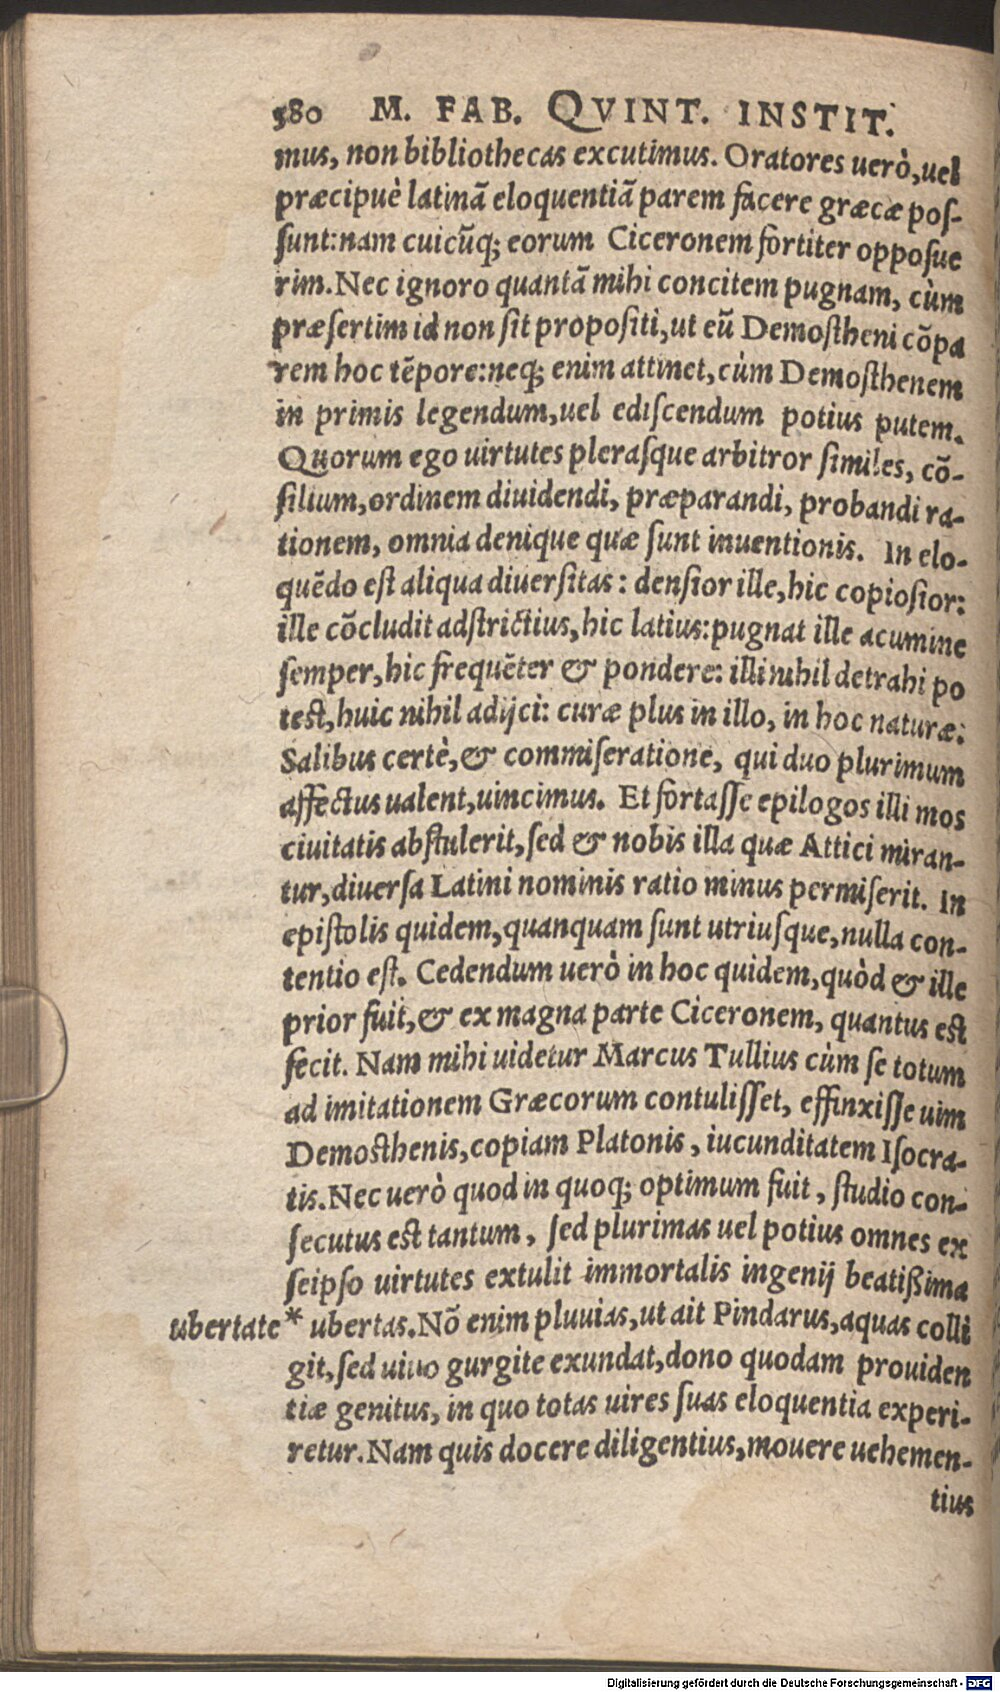 580 M. FAB. QVINT. INSTIT.
mus, non bibliothecas excutimus. Oratores uerò, uel
præcipuè latinā eloquentiā parem facere græcæ pos-
sunt: nam cuicūq; eorum Ciceronem fortiter opposue
rim. Nec ignoro quantā mihi concitem pugnam, cùm
præsertim id non sit propositi, ut eū Demostheni cōpa
rem hoc tēpore: neq; enim attinet, cùm Demosthenem
in primis legendum, uel ediscendum potius putem.
Quorum ego uirtutes plerasque arbitror similes, cō-
silium, ordinem diuidendi, præparandi, probandi ra-
tionem, omnia denique quæ sunt inuentionis. In elo-
quēdo est aliqua diuersitas: densior ille, hic copiosior:
ille cōcludit adstrictius, hic latius: pugnat ille acumine
semper, hic frequēter & pondere: illi nihil detrahi po
test, huic nihil adijci: curæ plus in illo, in hoc naturæ:
Salibus certè, & commiseratione, qui duo plurimum
affectus ualent, uincimus. Et fortasse epilogos illi mos
ciuitatis abstulerit, sed & nobis illa quæ Attici miran-
tur, diuersa Latini nominis ratio minus permiserit. In
epistolis quidem, quanquam sunt utriusque, nulla con-
tentio est. Cedendum uerò in hoc quidem, quòd & ille
prior fuit, & ex magna parte Ciceronem, quantus est
fecit. Nam mihi uidetur Marcus Tullius cùm se totum
ad imitationem Græcorum contulisset, effinxisse uim
Demosthenis, copiam Platonis, iucunditatem Isocra-
tis. Nec uerò quod in quoq; optimum fuit, studio con-
secutus est tantum, sed plurimas uel potius omnes ex
seipso uirtutes extulit immortalis ingenij beatißima
ubertate * ubertas. Nō enim pluuias, ut ait Pindarus, aquas colli
git, sed uiuo gurgite exundat, dono quodam prouiden
tiæ genitus, in quo totas uires suas eloquentia experi-
retur. Nam quis docere diligentius, mouere uehemen-
tius
Digitalisierung gefördert durch die Deutsche Forschungsgemeinschaft - DFG